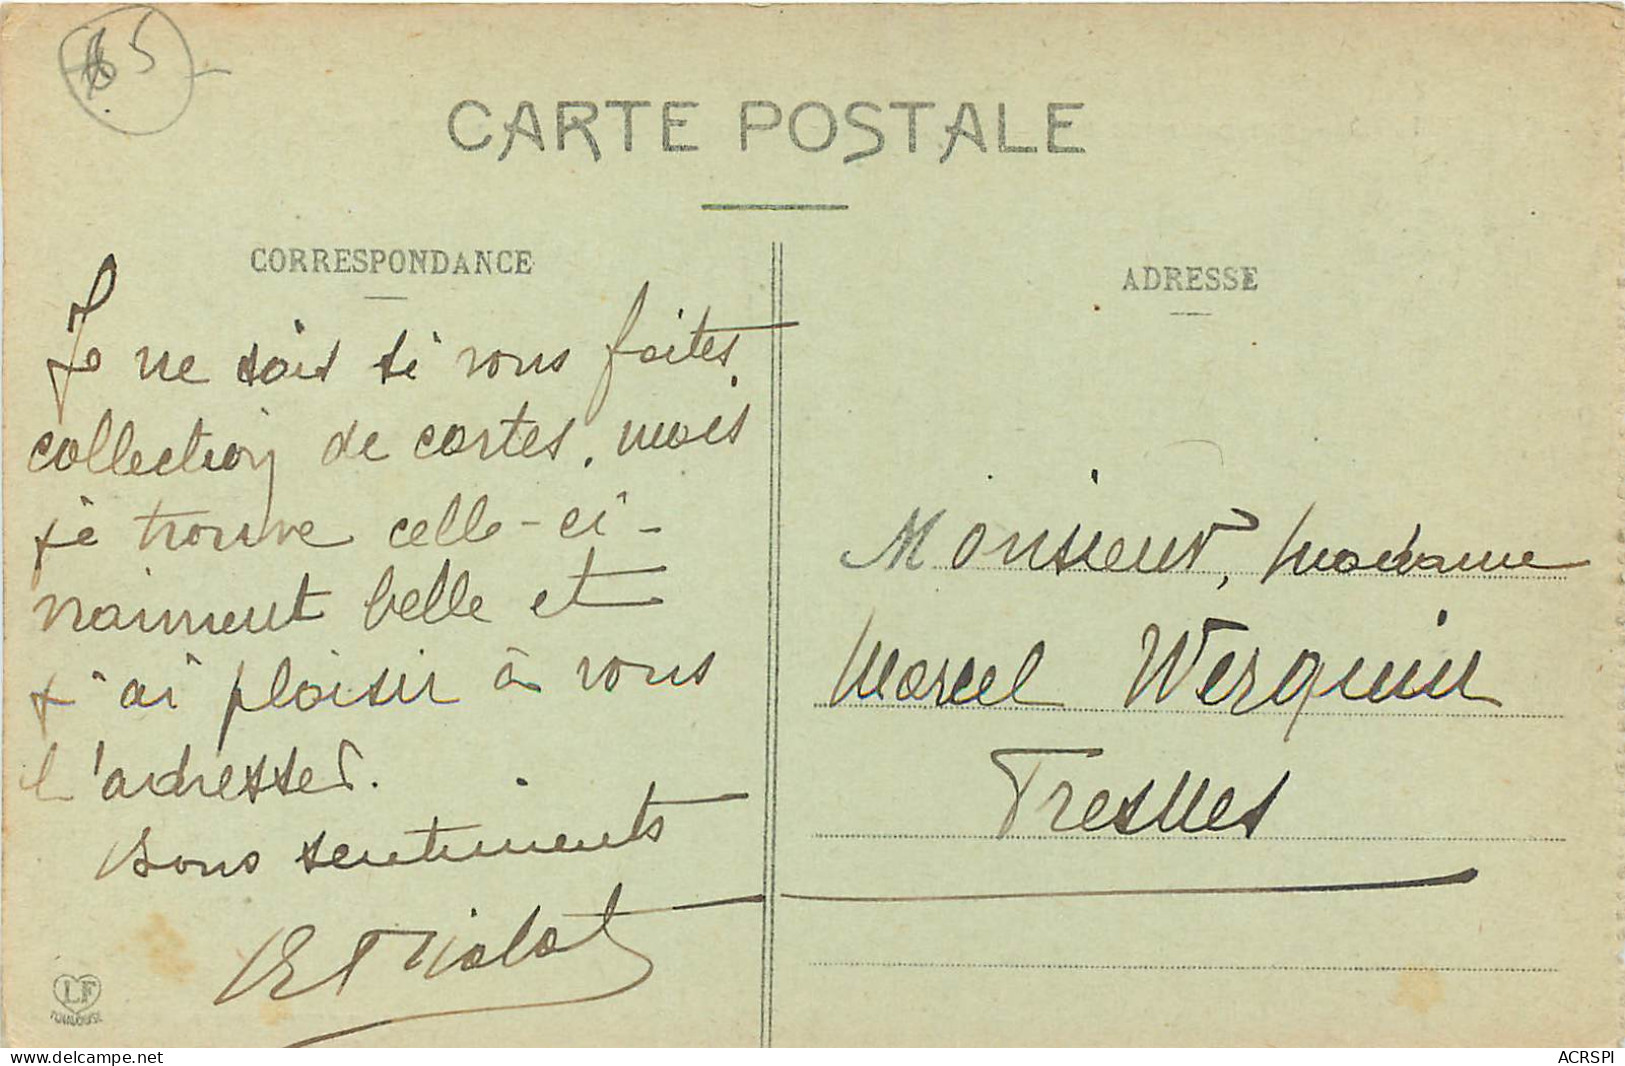 65
CARTE POSTALE
CORRESPONDANCE
Je ne sais si vous faites
collection de cartes, mais
je trouve celle-ci
vraiment belle et
j'ai plaisir à vous
l'adresser.
Bons sentiments
ADRESSE
Monsieur, Madame
Marcel Werquin
Fresnes
LF
TOULOUSE
www.delcampe.net
ACRSPI